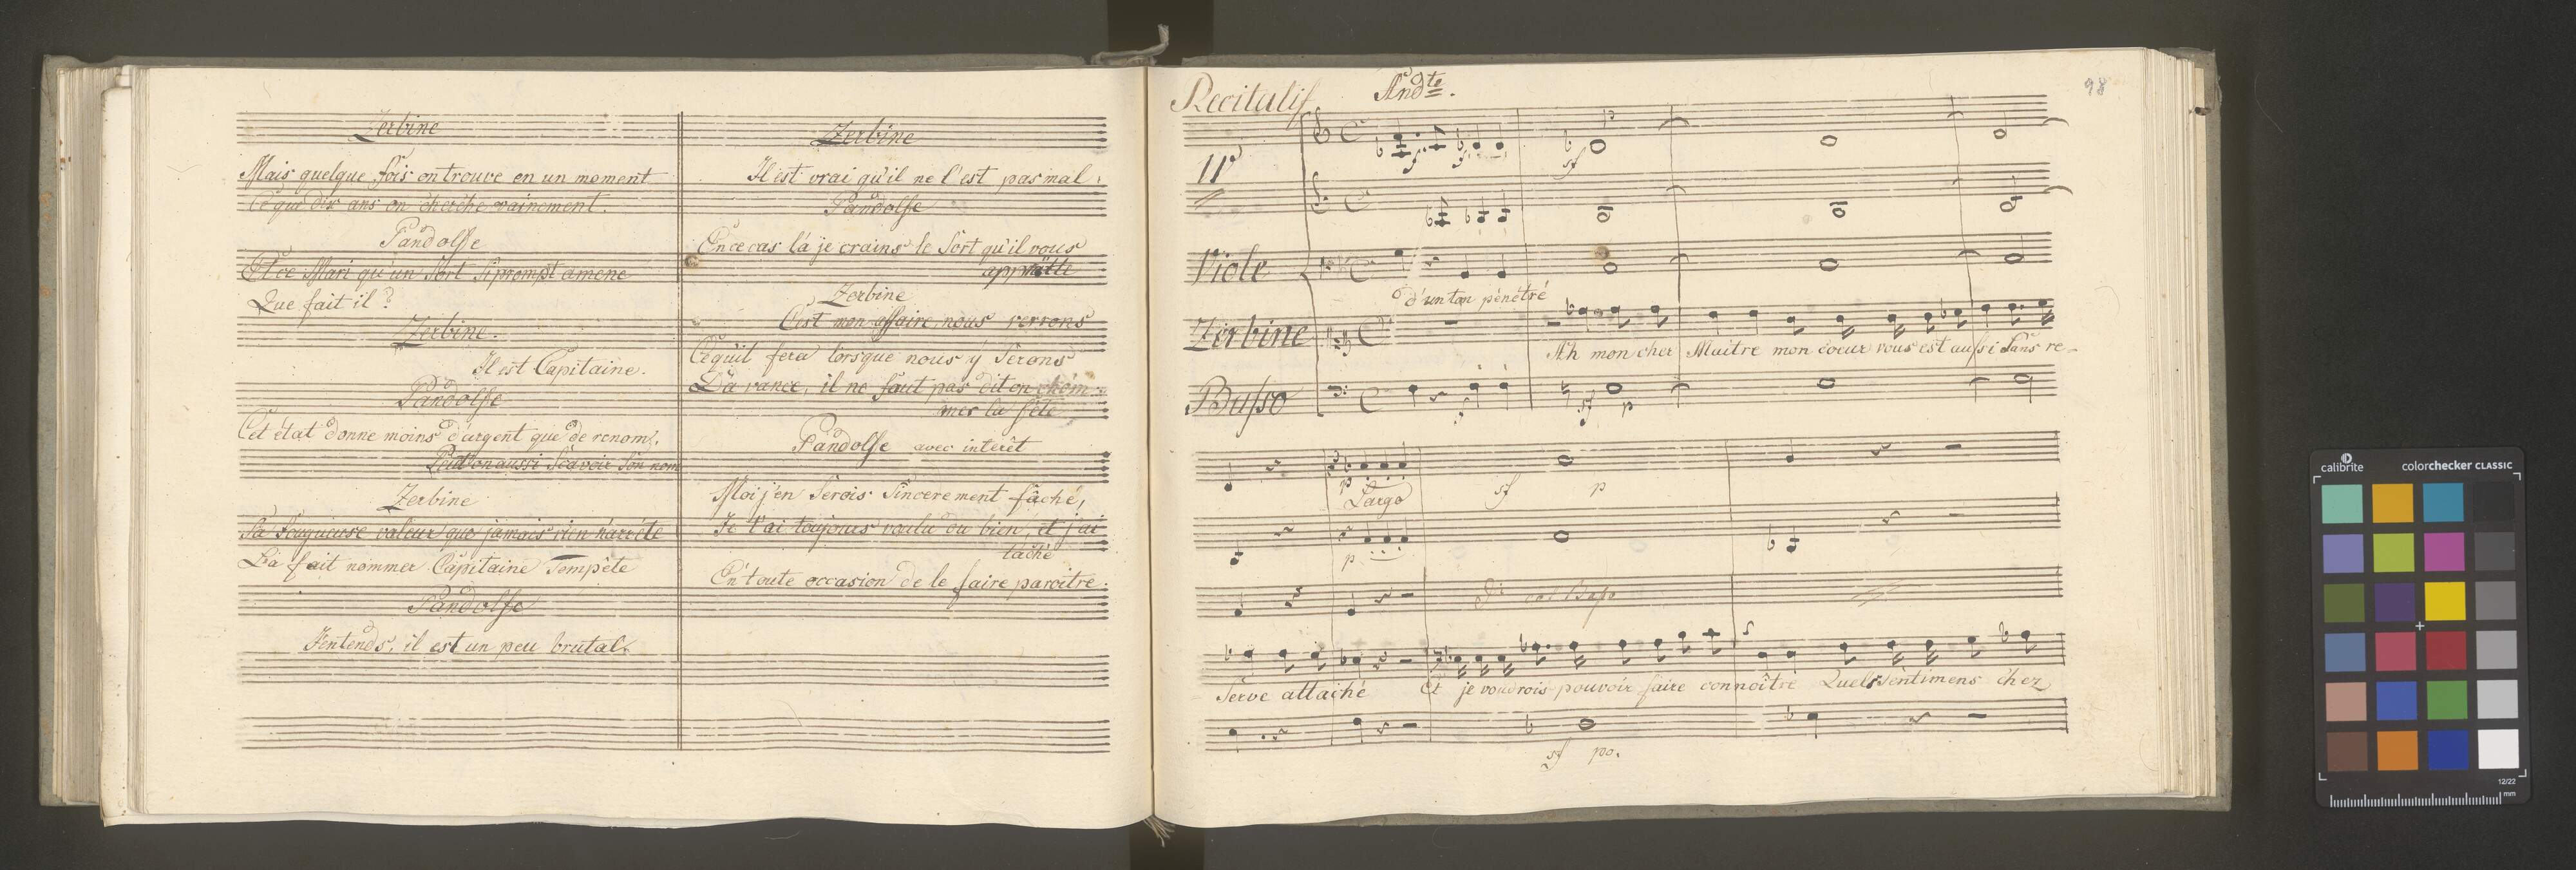 Zerbine
Mais quelque fois on trouve en un moment
Ce que dix ans on cherche vainement.
Pandolfe
Et ce Mari qu'un Sort si prompt amene
Que fait il?
Zerbine.
Il est Capitaine.
Pandolfe
Cet état donne moins d'argent que de renom,
Peut on aussi Sçavoir Son nom
Zerbine
Sa fougueuse valeur que jamais rien n'arrête
L'a fait nommer Capitaine Tempête
Pandolfe
J'entends, il est un peu brutal.
Zerbine
Il est vrai qu'il ne l'est pas mal.
Pandolfe
En ce cas là je crains le Sort qu'il vous
apprête
Zerbine
C'est mon affaire, nous verrons
Ce qu'il fera lorsque nous y Serons
D'avance, il ne faut pas dit on chom-
mer la fête
Pandolfe avec intérêt
Moi j'en Serois Sincerement fâché,
Je t'ai toujours voulu du bien, et j'ai
tâché
En toute occasion de le faire paroitre.
98
Recitatif Andte.
Vo
sf
Viole
d'un ton pénétré
Zerbine
Ah mon cher Maitre mon coeur vous est aussi Sans re-
Basso
sf p
p sf p
Largo
p
col Basso
Serve attaché Et je voudrois pouvoir faire connoître Quels Sentimens chez
sf po.
calibrite
colorchecker CLASSIC
12/22
mm